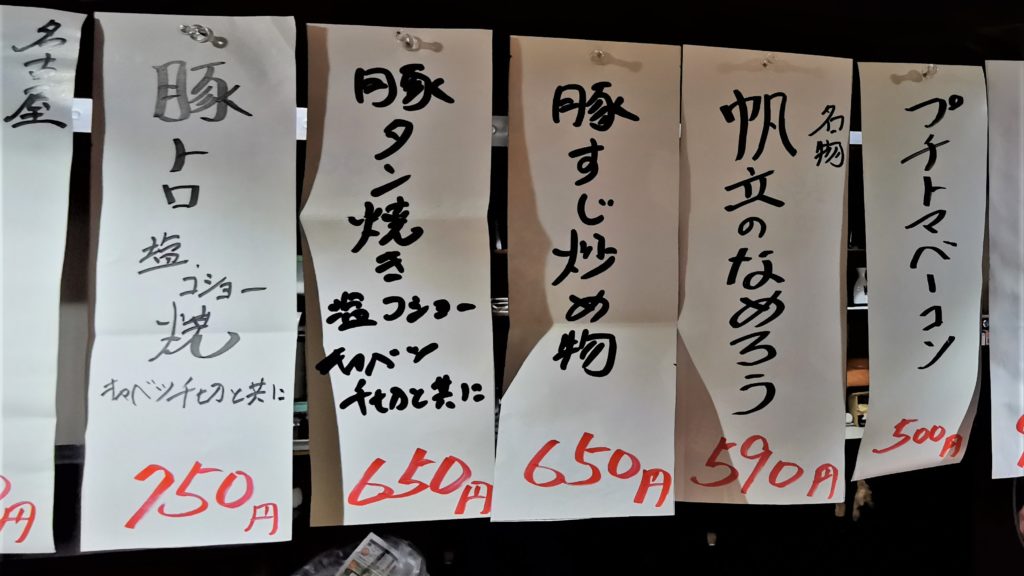 名古屋
円
豚トロ
塩、コショー
焼
キャベツ千切と共に
750円
豚タン焼き
塩コショー
キャベツ
千切と共に
650円
豚すじ炒め物
650円
名物
帆立のなめろう
590円
プチトマベーコン
500円